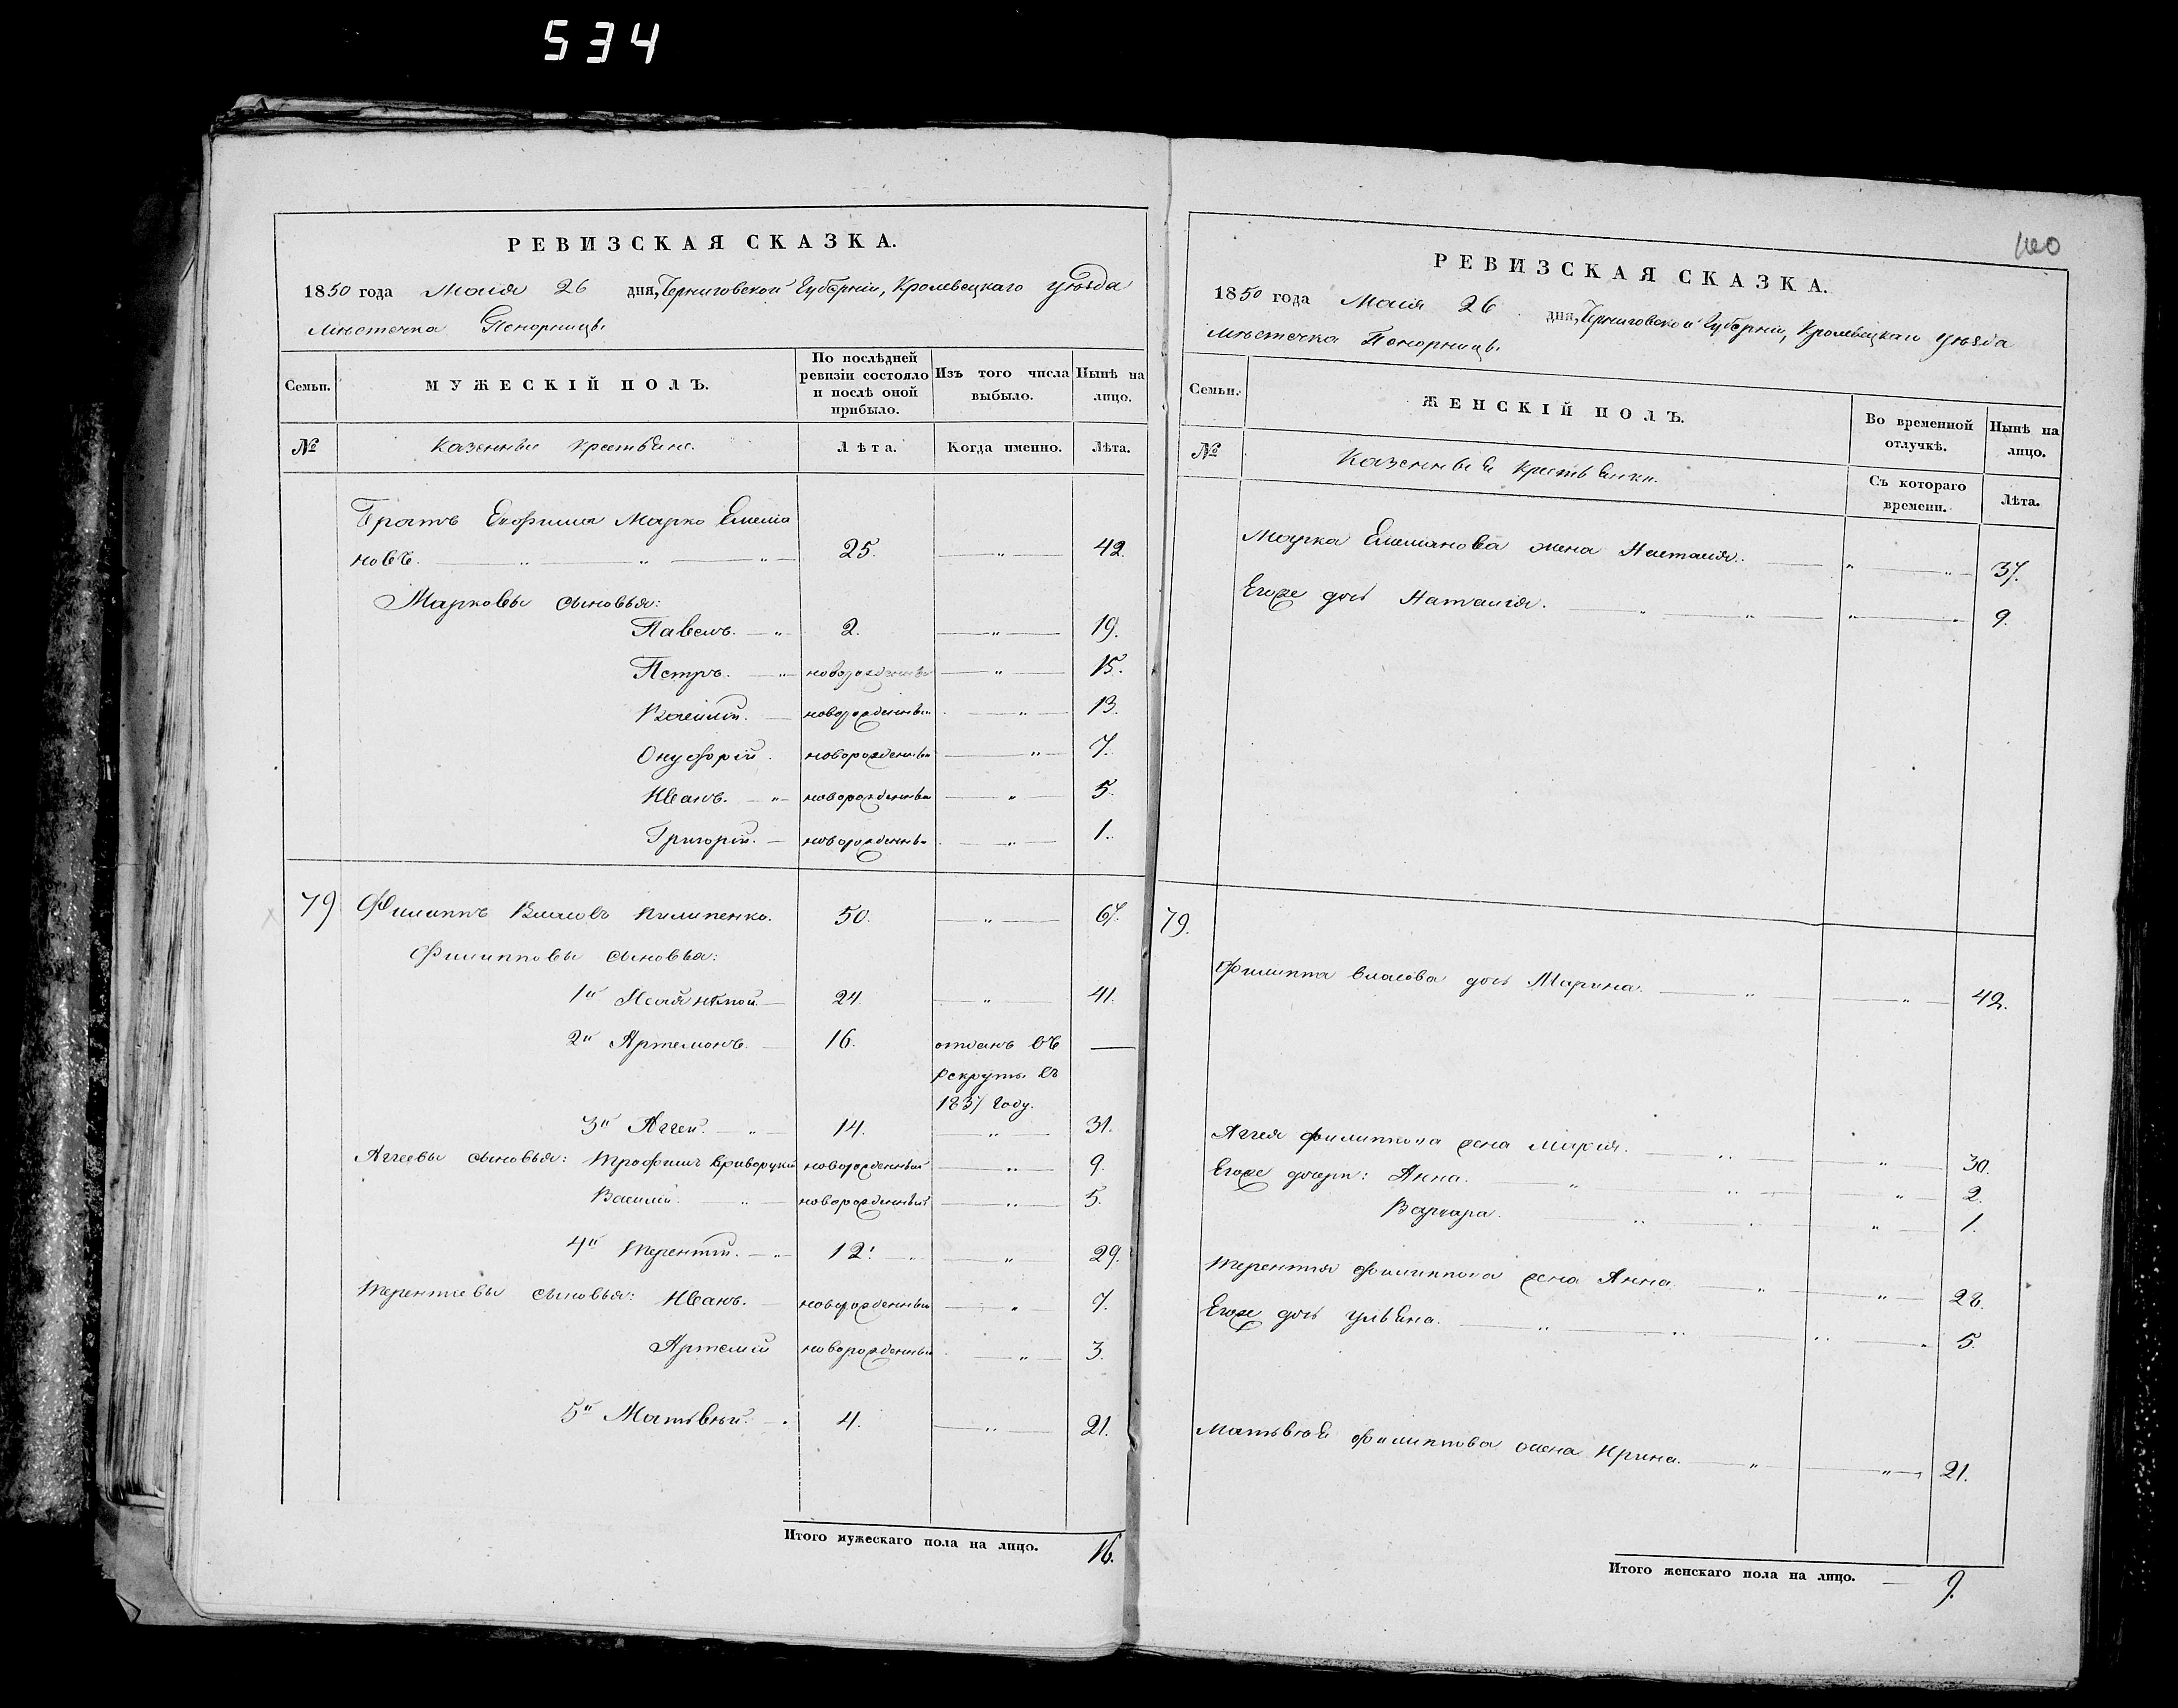 534
РЕВИЗСКАЯ СКАЗКА.
1850 года Маія 26 дня, Черниговской Губерніи, Кролевецкаго уѣзда
мѣстечка Понорницы
Семьи. МУЖЕСКІЙ ПОЛЪ. По послѣдней ревизіи состояло и послѣ оной прибыло. Изъ того числа выбыло. Нынѣ на лицо.
№ Казенные крестьяне. Лѣта. Когда именно. Лѣта.
Братъ Марко Емелія
новъ. 25. — „ — 42.
Марковы сыновья:
Павелъ. — „ 2. — „ — 19.
Петръ. — „ новорожденный — „ — 15.
Василій. — новорожденный — „ — 13.
Онуфрій. новорожденный — „ — 7.
Иванъ. — „ новорожденный — „ — 5.
Григорій. — новорожденный — „ — 1.
79 Филиппъ Власовъ Пилипенко. 50. — „ — 67.
Филипповы сыновья:
1й 24. — „ — 41.
2й Артемонъ. — 16. отданъ въ —
рекруты въ
1837 году.
3й Аггей. — „ — 14. — „ — 31.
Аггеевы сыновья: Трофимъ новорожденный — „ — 9.
Василій. — „ новорожденный — „ — 5.
4й Терентій. — „ 12. — „ — 29.
Терентіевы сыновья: Иванъ. — новорожденный — „ 7.
Артемій новорожденный — „ — 3.
5й Матвѣй. — 4. — „ — 21.
Итого мужескаго пола на лицо. 16.
РЕВИЗСКАЯ СКАЗКА.
1850 года Маія 26 дня, Черниговской Губерніи, Кролевецкаго уѣзда
мѣстечка Понорницы
Семьи. ЖЕНСКІЙ ПОЛЪ. Во временной отлучкѣ. Нынѣ на лицо.
№ Казенныя крестьянки. Съ котораго времени. Лѣта.
Марка Емельянова жена — „ — „ — 37.
Егоже дочь Наталія. — „ — „ — „ — „ 9.
79.
Филиппа Власова дочь Марина. — „ — „ — 42.
Аггея Филиппова жена Марія. — „ — „ — 30.
Егоже дочери: Анна. — „ — „ — „ — 2.
Варвара. — „ — „ — 1.
Терентія Филиппова жена Анна. — „ — „ — 28.
Егоже дочь Ульяна. — „ — „ — „ — 5.
Матвѣя Филиппова жена Ирина. — „ — „ — 21.
Итого женскаго пола на лицо. — 9.